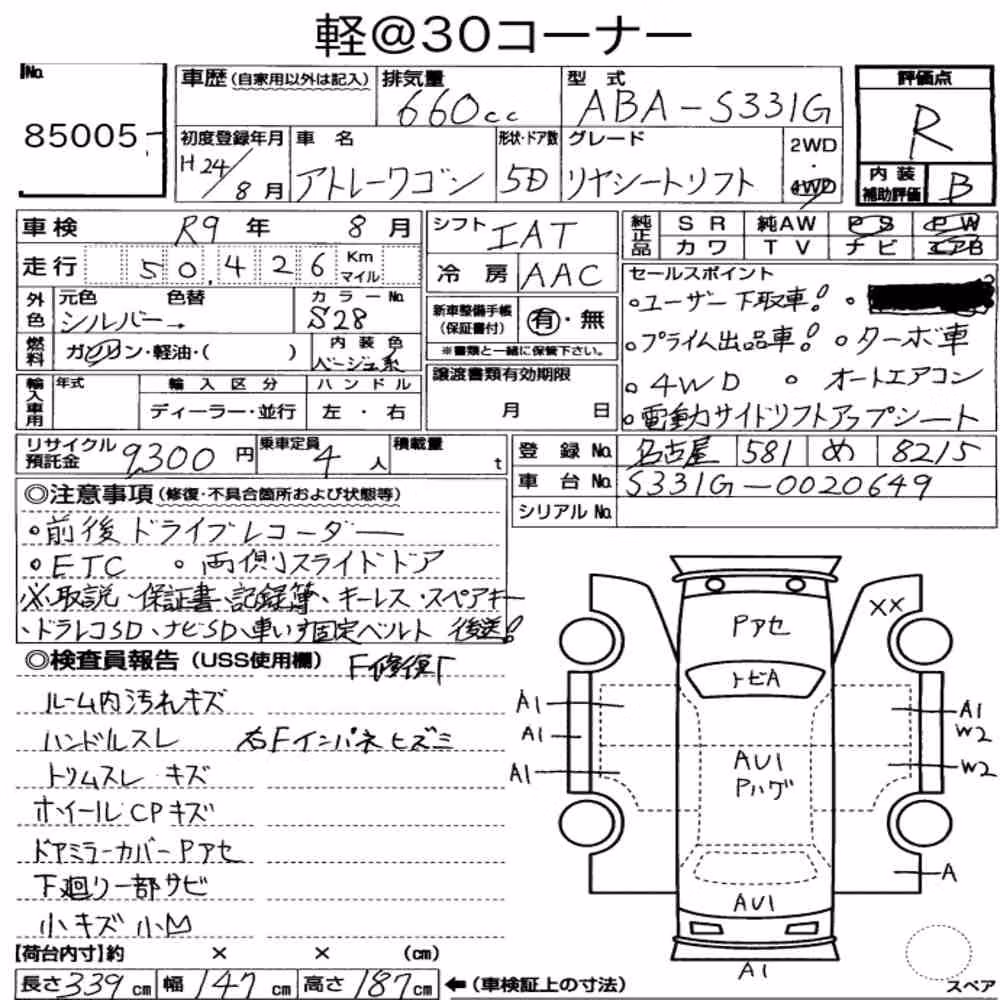 軽@30コーナー
No.
85005
車歴(自家用以外は記入)
排気量
660cc
型式
ABA-S331G
評価点
R
初度登録年月
H24/8月
車名
アトレーワゴン
形状・ドア数
5D
グレード
リヤシートリフト
2WD
・
4WD
内装
補助評価
B
車検 R9年 8月
シフト IAT
純正品
SR 純AW PS PW
カワ TV ナビ エアB
走行 50,426 Km マイル
冷房 AAC
セールスポイント
。ユーザー下取車! 。
。プライム出品車! 。ターボ車
。4WD 。オートエアコン
。電動サイドリフトアップシート
外色
元色 色替
シルバー→
カラーNo.
S28
新車整備手帳
(保証書付)
有・無
※書類と一緒に保管下さい。
燃料
ガソリン・軽油・( )
内装色
ベージュ系
譲渡書類有効期限
月 日
輸入車用
年式
輸入区分
ハンドル
ディーラー・並行
左・右
リサイクル
預託金
9,300円
乗車定員
4人
積載量
t
登録No. 名古屋 581 め 8215
車台No. S331G-0020649
シリアルNo.
◎注意事項(修復・不具合箇所および状態等)
。前後ドライブレコーダー
。ETC 。両側スライドドア
※取説、保証書、記録簿、キーレス・スペアキー
、ドラレコSD、ナビSD、車いす固定ベルト 後送!
◎検査員報告(USS使用欄) F修復F
ルーム内汚れキズ
ハンドルスレ 右Fインパネヒズミ
トリムスレ キズ
ホイールCPキズ
ドアミラーカバーPアセ
下廻り一部サビ
小キズ小凹
XX
Pアセ
トビA
A1
A1
A1
A1
W2
W2
AU1
Pハゲ
A
AU1
A1
スペア
【荷台内寸】約 × × (cm)
長さ339cm 幅147cm 高さ187cm ←(車検証上の寸法)